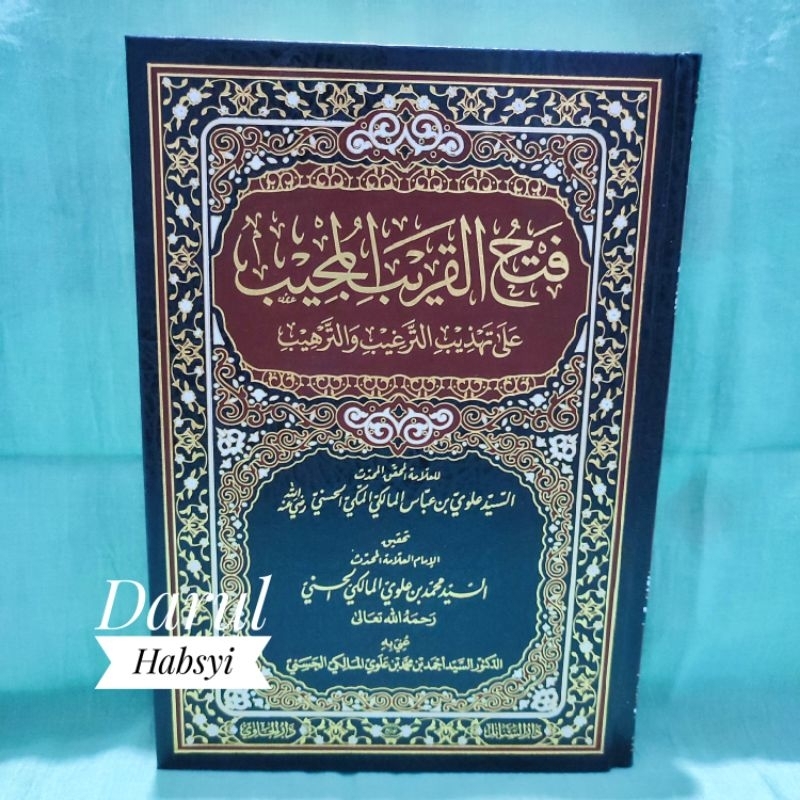 فَتْحُ القَرِيْبِ المُجِيْبِ
عَلَى تَهْذِيْبِ التَّرْغِيْبِ وَالتَّرْهِيْبِ
للعلامة المحقق المحدث
السيّد علوي بن عباس المالكي المكي الحسني رضي الله عنه
تحقيق
الإمام العلامة المحدث
السيّد محمد بن علوي المالكي الحسني
رحمه الله تعالى
عُني به
الدكتور السيد أحمد بن محمد بن علوي المالكي الحسني
دار السنابل
دار الحاوي
Darul
Habsyi